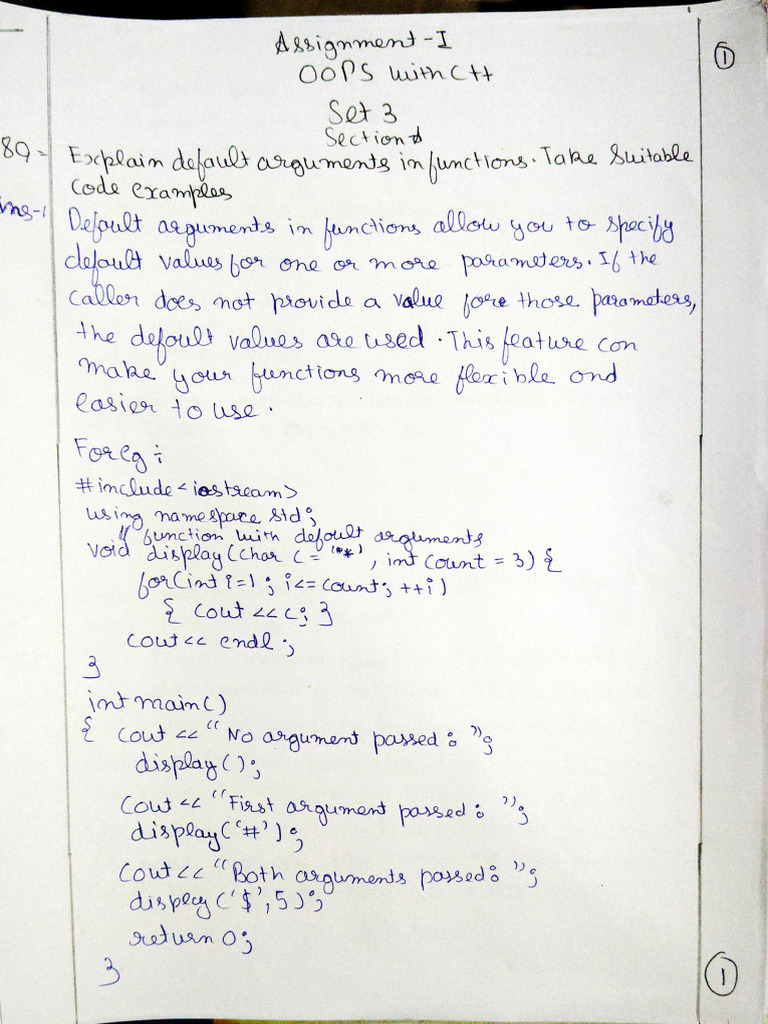 Assignment-I
①
OOPS with C++
Set 3
Section
8Q= Explain default arguments in functions. Take Suitable
Code examples
Ans-1 Default arguments in functions allow you to specify
default values for one or more parameters. If the
caller does not provide a value fore those parameters,
the default values are used. This feature can
make your functions more flexible and
easier to use.
For eg:
#include<iostream>
using namespace std;
// function with default arguments
void display(char c = '*', int count = 3) {
for(int i=1; i<=count; ++i)
{ cout << c; }
cout << endl;
}
int main()
{ cout << "No argument passed: ";
display();
cout << "First argument passed: ";
display('#');
cout << "Both arguments passed: ";
display('$', 5);
return 0;
}
①